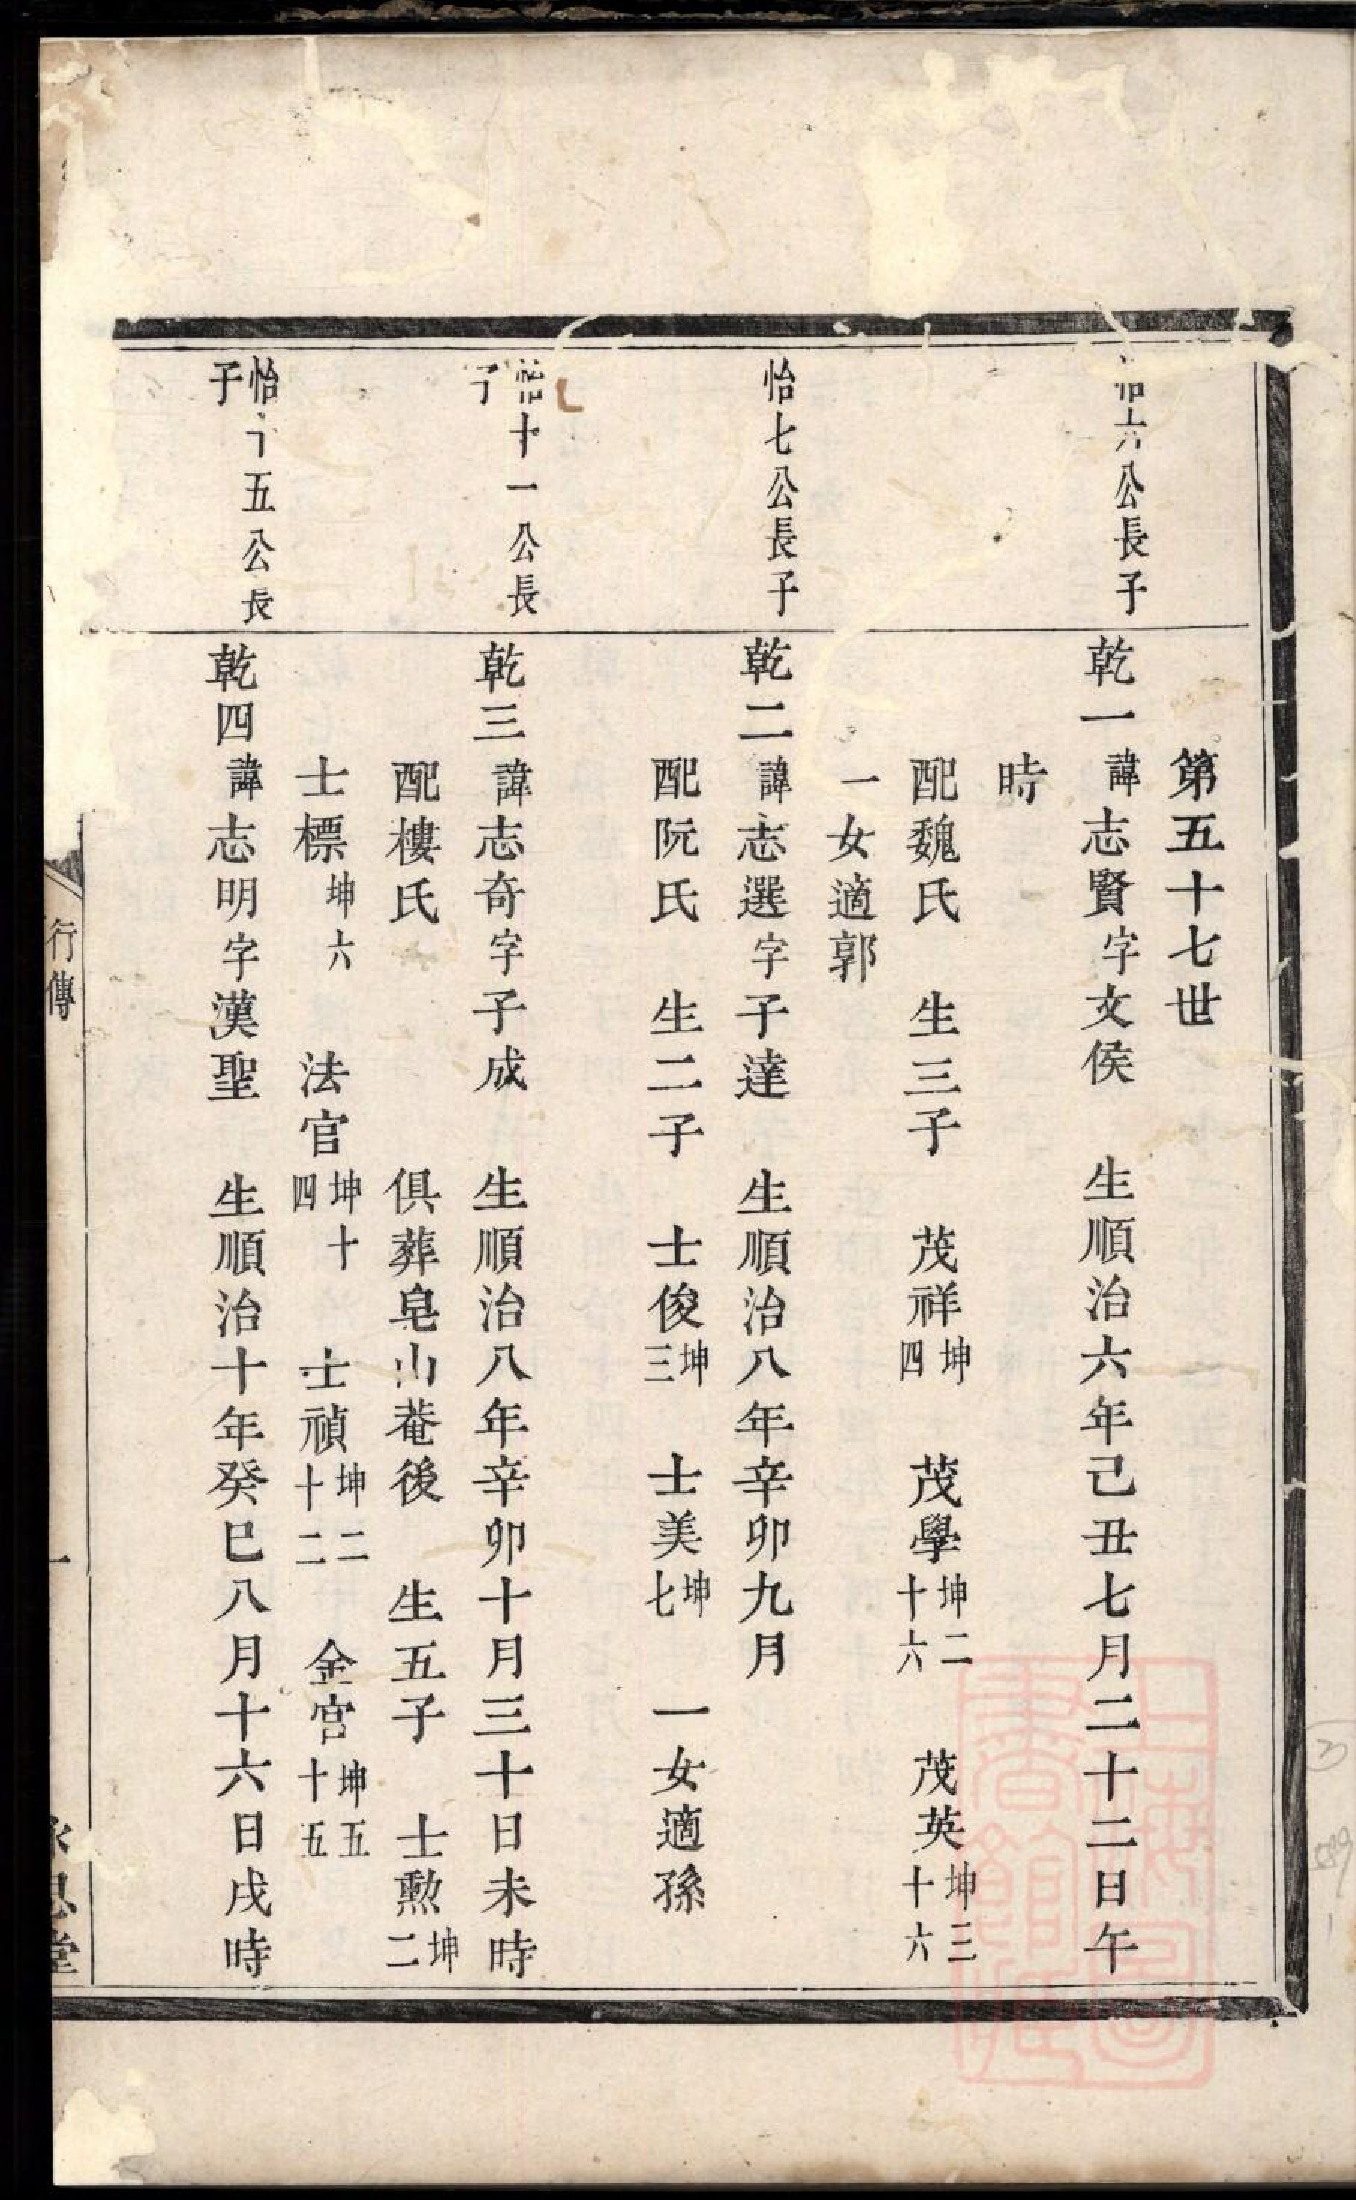 第五十七世
怡六公長子
乾一諱志賢字文侯 生順治六年己丑七月二十二日午
時
配魏氏 生三子 茂祥坤四 茂學坤二十六 茂英坤三十六
一女適郭
怡七公長子
乾二諱志選字子達 生順治八年辛卯九月
配阮氏 生二子 士俊坤三 士美坤七 一女適孫
怡十一公長子
乾三諱志奇字子成 生順治八年辛卯十月三十日未時
配樓氏 俱葬皂山菴後 生五子 士勲坤二
士標坤六 法官坤十四 士禎坤二十二 金宫坤五十五
怡十五公長子
乾四諱志明字漢聖 生順治十年癸巳八月十六日戌時
行傳
一
思堂
上海圖書館藏